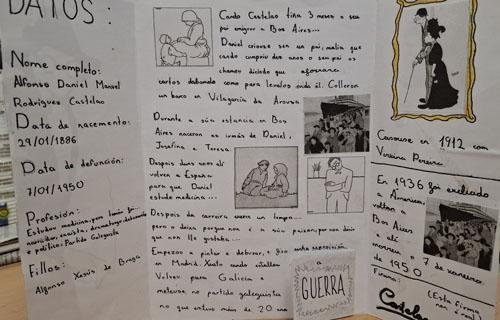 DATOS:
Nome completo:
Alfonso Daniel Manuel
Rodríguez Castelao
Data de nacemento:
29/01/1886
Data de defunción:
7/01/1950
Profesión:
Estudou medicina, pero tamén foi
narrador, ensaísta, dramaturgo, debuxante
e político: Partido Galeguista
Fillos:
Alfonso Xesús de Braga
Cando Castelao tiña 3 meses o seu
pai emigrou a Bos Aires...
Daniel criouse sen un pai, mália que
cando cumpriu dez anos o seu pai os
chamou dicindo que
cartos dabondo como para levalos onda él. Colleron
un barco en Vilagarcía da Arousa
Durante a súa estancia en Bos
Aires naceron as irmás de Daniel,
Josefina e Teresa
Despois duns anos alí
volven a España
para que Daniel
estude medicina...
Despois da carreira exerceu un tempo...
pero o deixa porque non é a súa paixón, por non dicir
que non lle gustaba...
Empezou a pintar e debuxar, e fixo unha exposición
en Madrid. Xusto cando estallou a
Volveu para Galicia e
meteuse no partido galeguista
no que estivo máis de 20 anos
GUERRA
Casouse en 1912 con
Virxinia Pereira.
En 1936 foi exiliado
a América,
voltou a
Bos Aires
e alí
morreu o 7 de xaneiro
de 1950
Firma:
(Esta firma
non é real)
Castelao